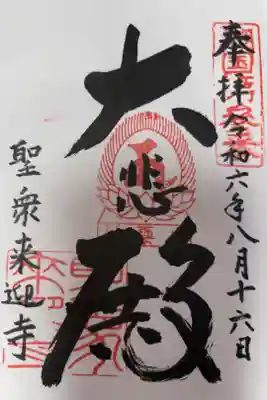 奉拝 令和六年八月十六日
大悲殿
聖衆来迎寺